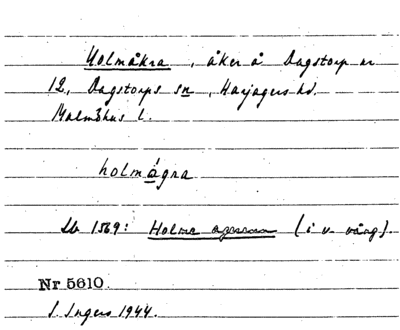 Holmåkra, åker å Dagstorp nr
12, Dagstorps sn, Harjagers hd.
Malmöhus l.
holmågra
Lb 1569: Holme agrenn (i v. vång).
Nr 5610.
I. Ingers 1944.